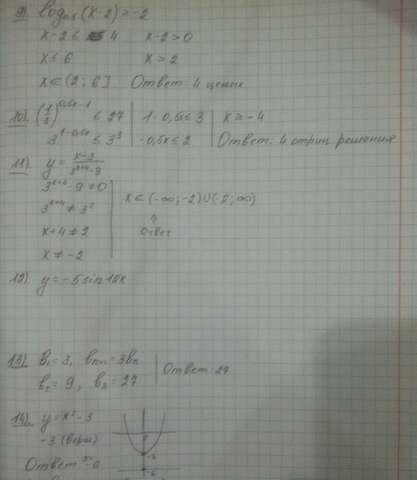 9). log₀,₅(x-2) ≥ -2
x-2 ≤ 4 x-2 > 0
x ≤ 6 x > 2
x ∈ (2; 6] Ответ: 4 целых
10). (1/3)^(0,5x-1) ≤ 27 | 1-0,5x ≤ 3 | x ≥ -4
3^(1-0,5x) ≤ 3³ | -0,5x ≤ 2 | Ответ: 4 отриц. решения
11). y = (x-3)/(3^(x+4)-9)
3^(x+4) - 9 ≠ 0
3^(x+4) ≠ 3² | x ∈ (-∞; -2)∪(-2; ∞)
x+4 ≠ 2 | Ответ
x ≠ -2
12). y = -5 sin 15x
13). b₁ = 3, bₙ₊₁ = 3bₙ | Ответ: 27
b₂ = 9, b₃ = 27
14). y = x² - 3
-3 (верш)
Ответ